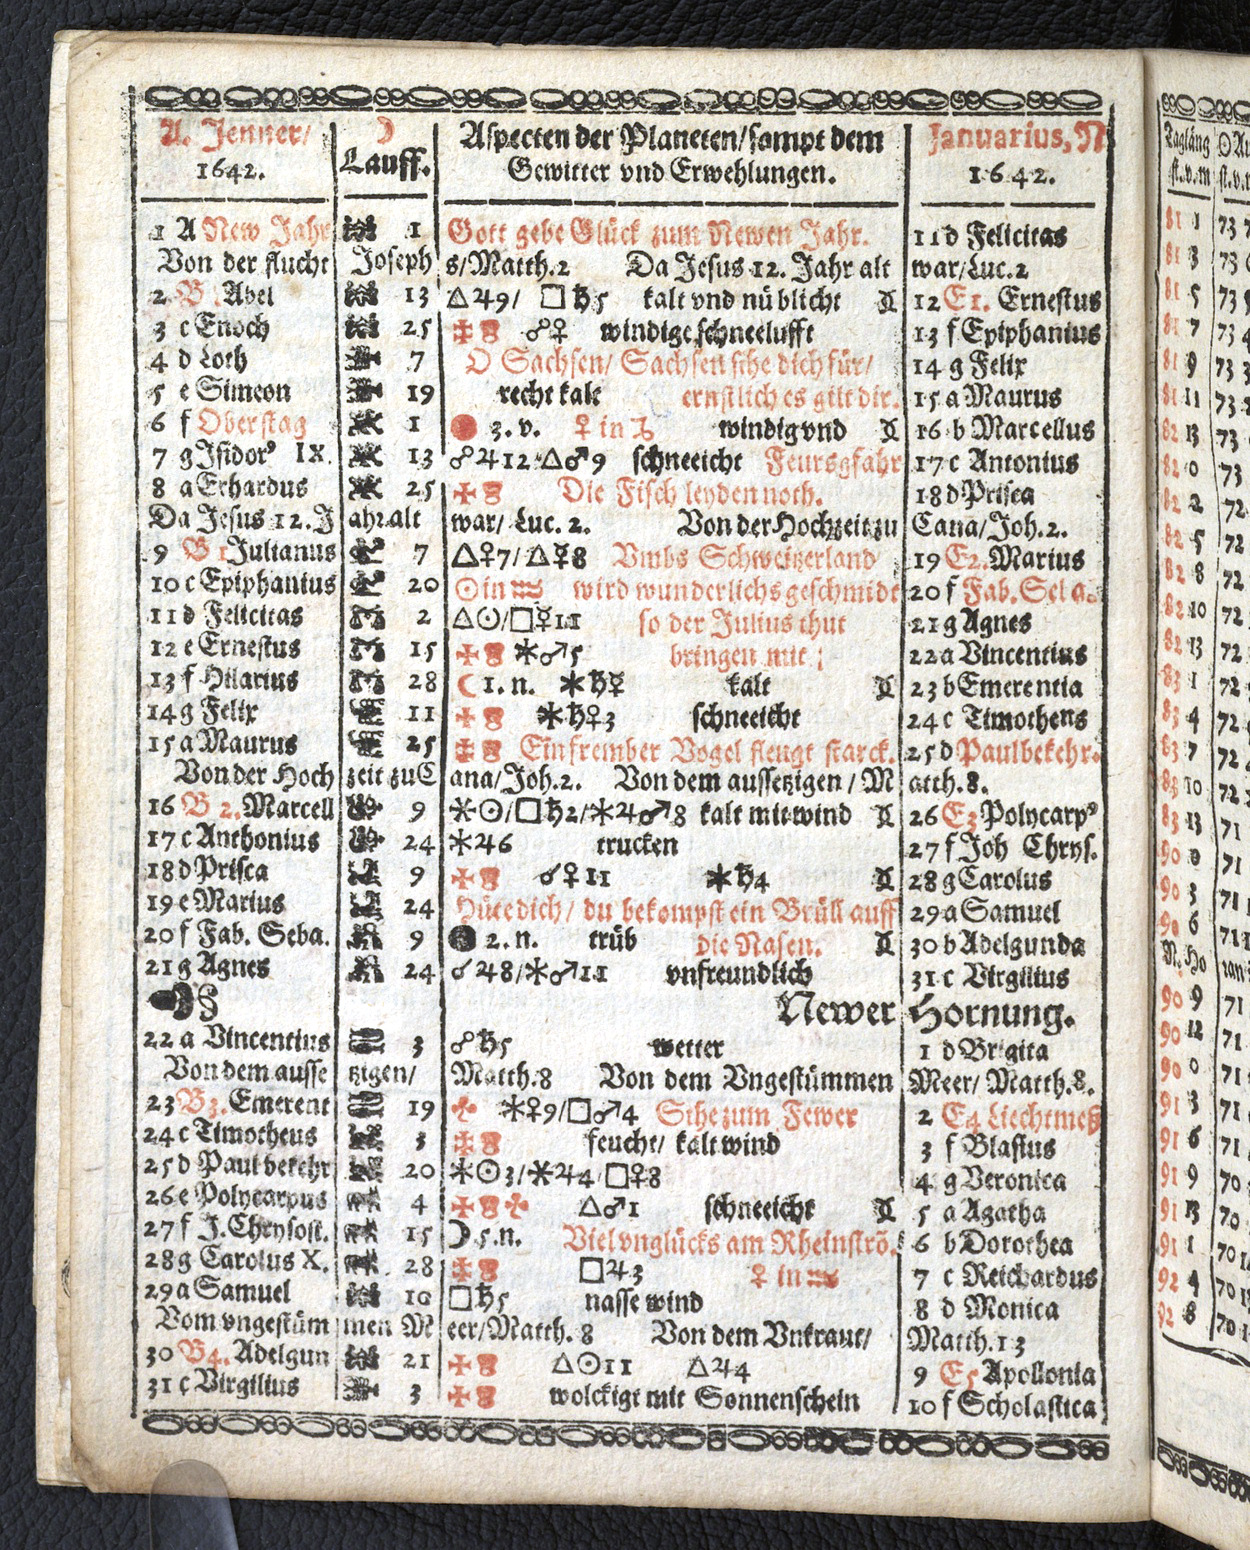 A. Jenner/ ☽ Aspecten der Planeten/sampt dem Januarius, N
1642. Lauff. Gewitter vnd Erwehlungen. 1642.
1 A New Jahr 1 Gott gebe Glück zum Newen Jahr. 11 d Felicitas
Von der flucht Joseph s/Matth.2 Da Jesus 12. Jahr alt war/Luc.2
2 B. Abel 13 △♃9/ □♄5 kalt vnd nüblicht 12 E1. Ernestus
3 c Enoch 25 ☍♀ windige schneelufft 13 f Epiphanius
4 d Loth 7 O Sachsen/ Sachsen sihe dich für/ 14 g Felix
5 e Simeon 19 recht kalt ernstlich es gilt dir. 15 a Maurus
6 f Oberstag 1 3. v. ♀ in ♑ windig vnd 16 b Marcellus
7 g Isidor⁹ IX. 13 ☍♃12 △♂9 schneeicht Feursgfahr 17 c Antonius
8 a Erhardus 25 Die Fisch leyden noth. 18 d Prisca
Da Jesus 12. J ahr alt war/ Luc. 2. Von der Hochzeit zu Cana/Joh.2.
9 B 1 Julianus 7 △♀7/△☿8 Vmbs Schweitzerland 19 E2. Marius
10 c Epiphanius 20 ☉ in ♒ wird wunderlichs geschmidt 20 f Fab. Seba.
11 d Felicitas 2 △☉/□☿11 so der Julius thut 21 g Agnes
12 e Ernestus 15 ✶♂5 bringen mit 22 a Vincentius
13 f Hilarius 28 ☾ 1. n. ✶♄☿ kalt 23 b Emerentia
14 g Felix 11 ✶♄♀3 schneeicht 24 c Timothens
15 a Maurus 25 Ein frembder Vogel fleugt starck. 25 d Paulbekehr.
Von der Hoch zeit zu C ana/Joh.2. Von dem aussetzigen / M atth.8.
16 B 2. Marcell 9 ✶☉/□♄2/✶♃♂8 kalt mit wind 26 E3 Polycarp⁹
17 c Anthonius 24 ✶♃6 trucken 27 f Joh Chrys.
18 d Prisca 9 ☌♀11 ✶♄4 28 g Carolus
19 e Marius 24 Hüte dich/ du bekompst ein Brüll auff 29 a Samuel
20 f Fab. Seba. 9 2. n. trüb die Nasen. 30 b Adelgunda
21 g Agnes 24 ☌♃8/✶♂11 vnfreundlich 31 c Virgilius
Newer Hornung.
22 a Vincentius 3 ☍♄5 wetter 1 d Brigita
Von dem ausse tzigen/ Matth.8 Von dem Vngestümmen Meer/ Matth.8.
23 B3. Emerent 19 ✶♀9/□♂4 Sihe zum Fewer 2 E4 Liechtmeß
24 c Timotheus 3 feucht/ kalt wind 3 f Blasius
25 d Paul bekehr 20 ✶☉3/✶♃4 □♀8 4 g Veronica
26 e Polycarpus 4 △♂1 schneeicht 5 a Agatha
27 f J. Chrysost. 15 ☽ 5. n. Viel vnglücks am Rheinströ. 6 b Dorothea
28 g Carolus X. 28 □♃3 ♀ in ♒ 7 c Reichardus
29 a Samuel 10 □♄5 nasse wind 8 d Monica
Vom vngestüm men M eer/Matth. 8 Von dem Vnkraut/ Matth.13
30 B4. Adelgun 21 △☉11 △♃4 9 E5 Apollonia
31 c Virgilius 3 wolckigt mit Sonnenschein 10 f Scholastica